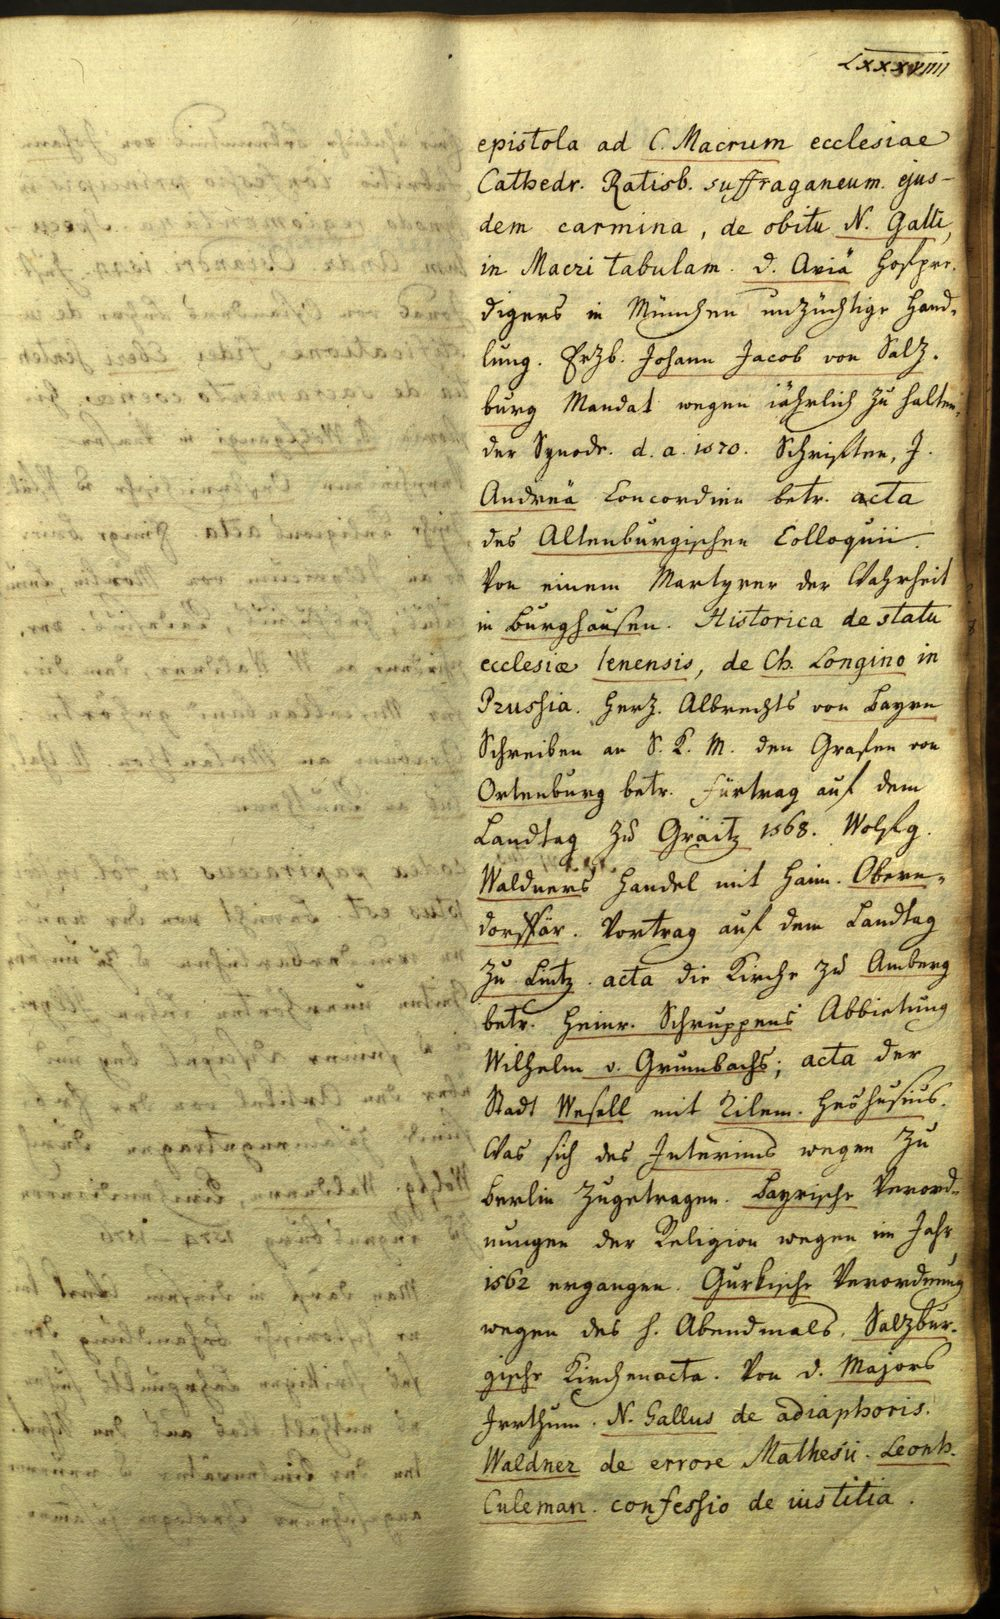 LXXXVIIII
epistola ad C. Macrum ecclesiae
Cathedr. Ratisb. suffraganeum. ejus-
dem carmina, de obitu N. Galli,
in Macri tabulam. D. Aviä Hofpre-
digers in München unzüchtige Hand-
lung. Erzb. Johann Jacob von Salz-
burg Mandat wegen jährlich zu halten-
der Synode. d. a. 1570. Schriften, J.
Andreä Concordien betr. acta
des Altenburgischen Colloquii.
Von einem Martyrer der Wahrheit
in Burghausen. Historica de statu
ecclesiæ Ienensis, de Ch. Longino in
Prussia. Herz. Albrechts von Bayrn
Schreiben an S. K. M. den Grafen von
Ortenburg betr. Fürtrag auf dem
Landtag zu Gräitz 1568. Wolfg.
Waldners Handel mit Haim. Obern-
dorffär. Vortrag auf dem Landtag
zu Lintz. acta die Kirche zu Amberg
betr. Heinr. Schruppens Abbietung
Wilhelm v. Grumbachs; acta der
Stadt Wesell mit Tilem. Heshusius.
Was sich des Interims wegen zu
Berlin zugetragen. Bayrische Verord-
nungen der Religion wegen im Jahr
1562 ergangen. Gurkische Verordnung
wegen des h. Abendmals. Salzbur-
gische Kirchenacta. Von D. Majors
Irrthum. N. Gallus de adiaphoris.
Waldner de errore Mathesii. Leonh.
Culeman. confessio de iustitia.